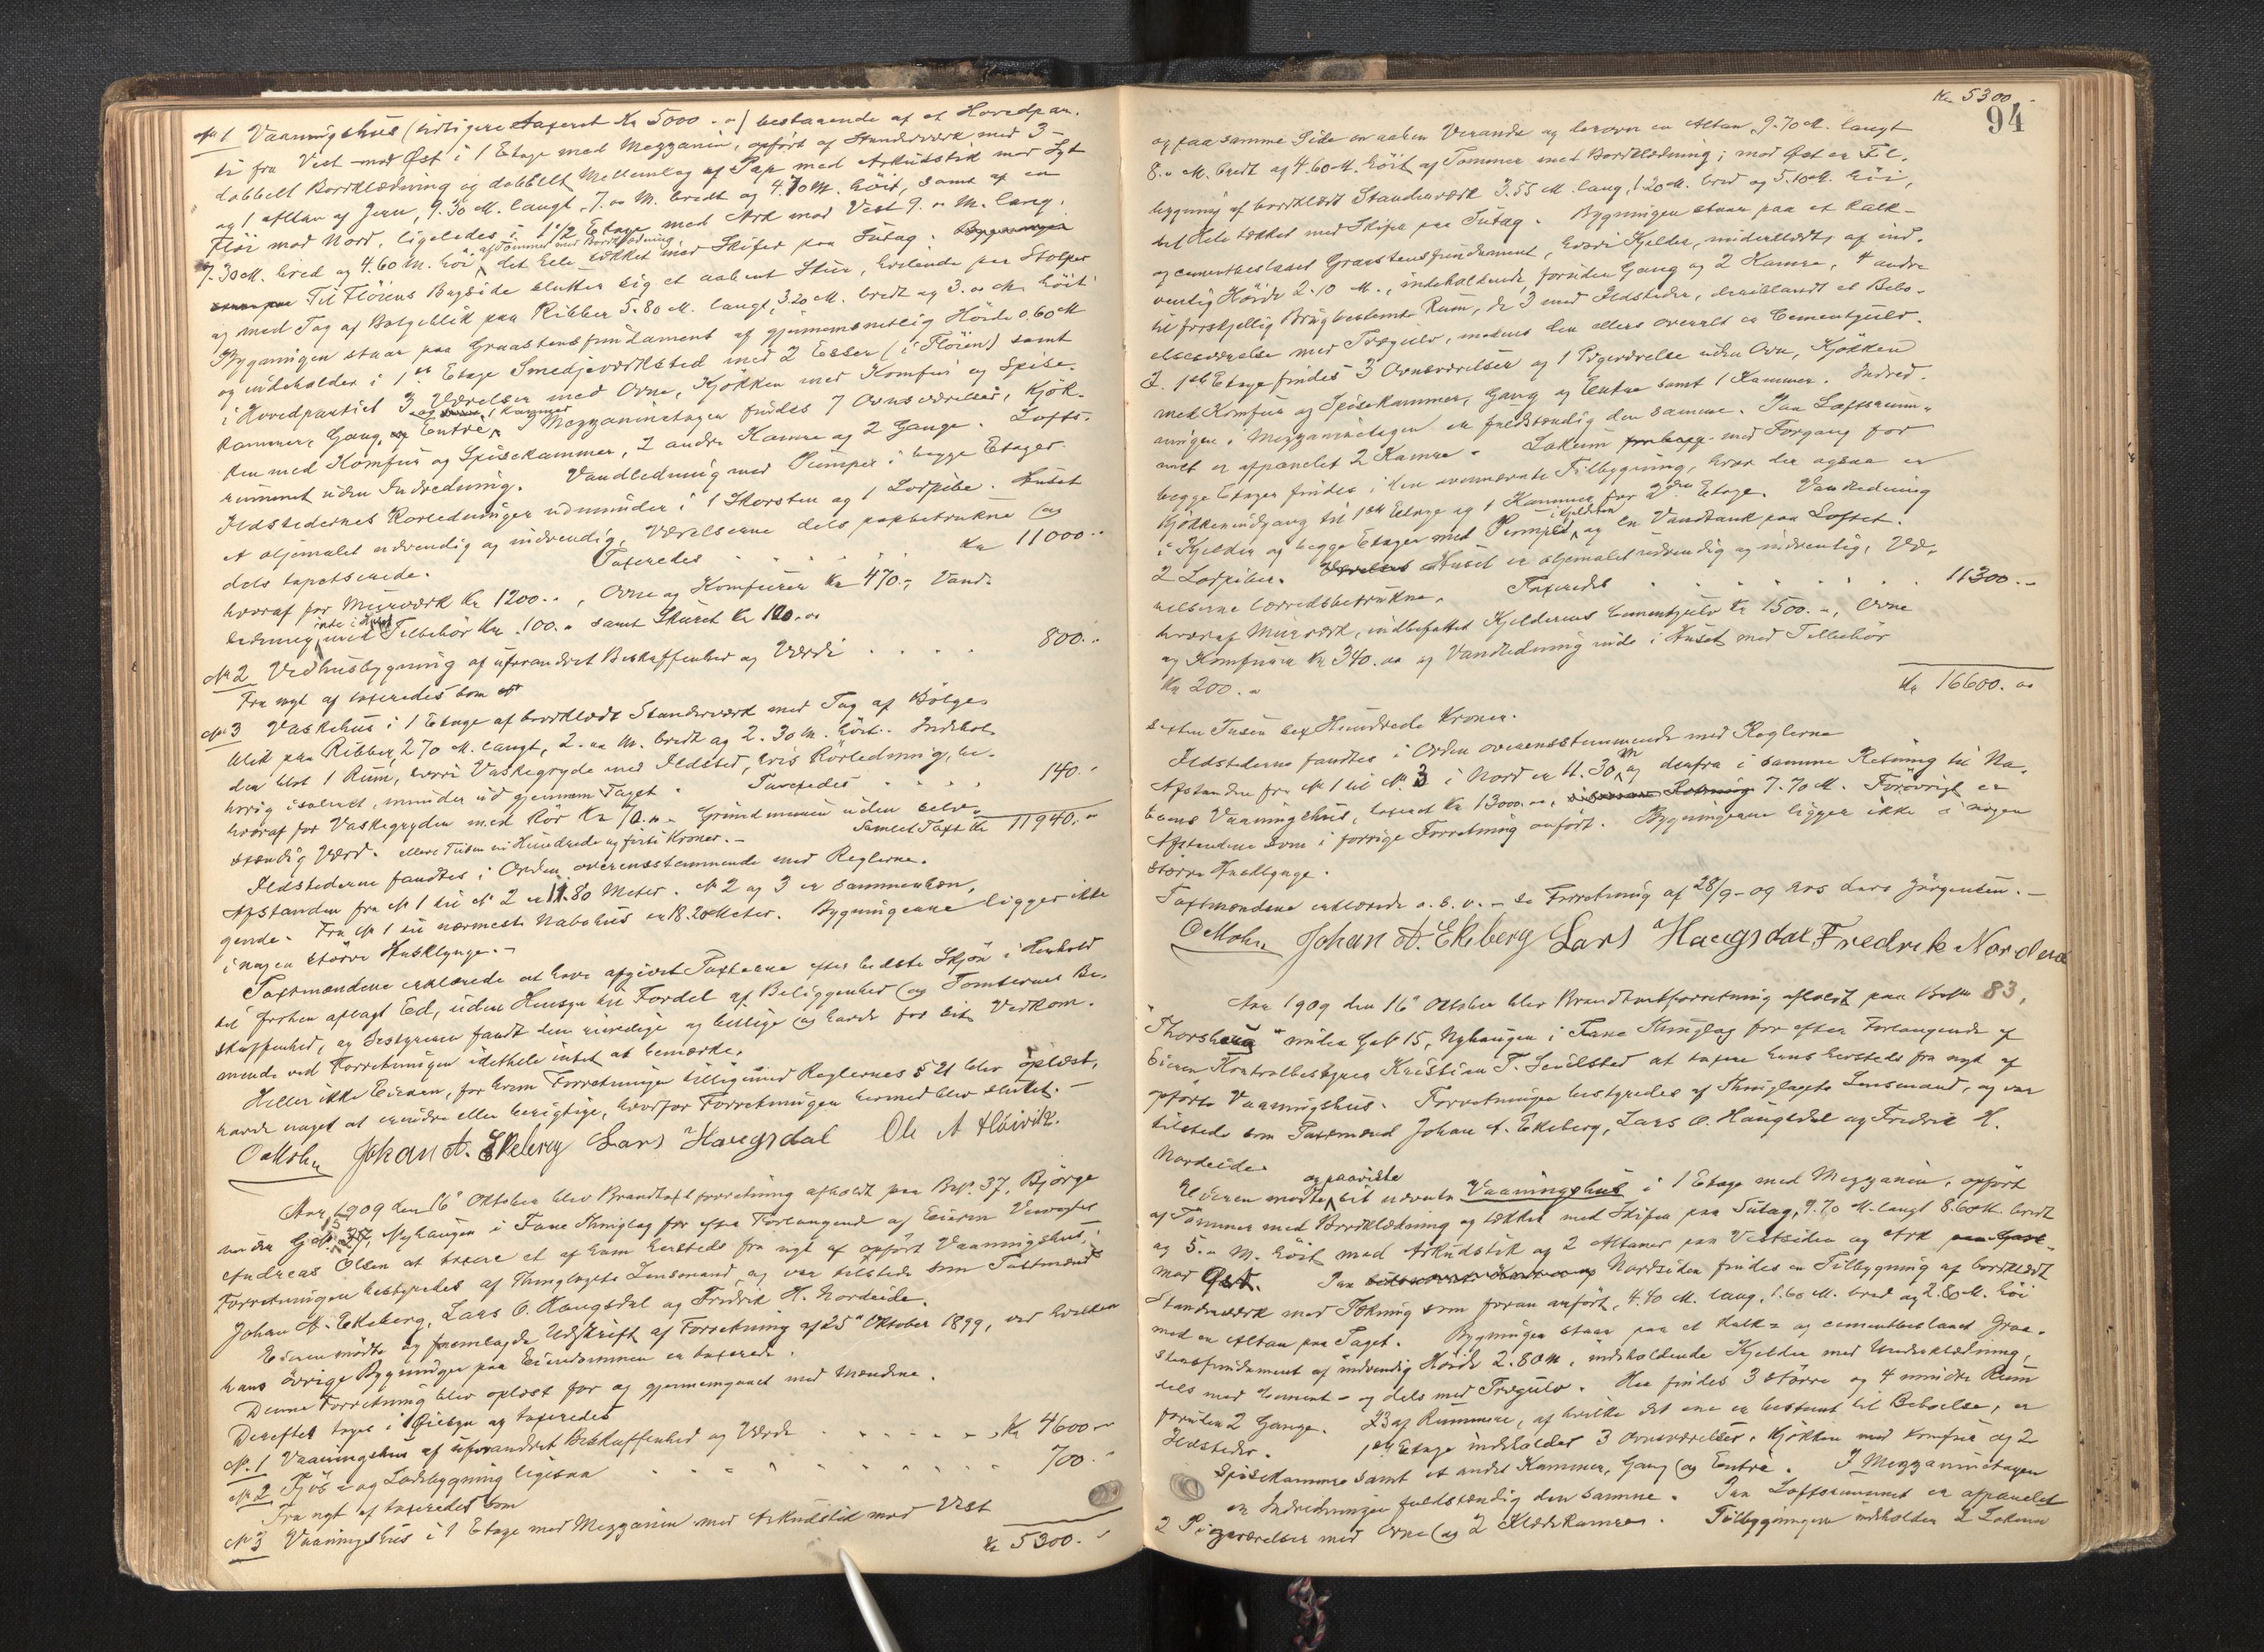 No 1 Vaaningshus (tidligere taxeret Kr 5000.-) bestaaende af et Hovedpar-
ti fra Vest mod Øst i 1 Etage med Mezzanin, opført af Standerværk med 3-
dobbelt Bordklædning og dobbelt Mellemlag af Pap med Arkudstik mod Syd
og 1 Altan af Jern, 9.30 M. langt, 7.00 M. bredt og 4.70 M. høit, samt af en
Fløi mod Nord, ligeledes i 1 1/2 Etage med Ark mod Vest 9.00 M. lang,
7.30 M. bred og 4.60 M. høi, af Tømmer med Bordklædning, det hele tækket med Skifer paa Sutag. Bygningen
staar paa Til Fløiens Bagside slutter sig et aabent Skur, hvilende paa Stolper
og med Tag af Bølgeblik paa Ribber 5.80 M. langt, 3.20 M. bredt og 3.00 M. høit
Bygningen staar paa Graastensfundament af gjennemsnitlig Høide 0.60 M
og indeholder i 1ste Etage Smedjeværksted med 2 Esser (i Fløien) samt
i Hovedpartiet 3 Værelser med Ovne, Kjøkken med Komfur og Spise-
kammer, Gang, og Entre, og 1 Kammer. I Mezzaninetagen findes 7 Ovnsværelser, Kjøk-
ken med Komfur og Spisekammer, 2 andre Kamre og 2 Gange. Lofts-
rummet uden Indredning. Vandledning med Pumper i begge Etager
Ildstedernes Rørledninger udmunder i 1 Skorsten og 1 Lodpibe. Huset
er oljemalet udvendig og indvendig, Værelserne dels papbetrukne (og
dels tapetserede. Taxeres . . . . Kr 11000.-
hvoraf for Murværk Kr 1200.-, Ovne og Komfurer Kr 470.-, Vand-
ledning inde i Huset med Tilbehør Kr. 100.- samt Skuret Kr 120.00
No 2 Vedhusbygning af uforandret Beskaffenhed og Værdi . . . . 800.-
Fra nyt af taxeredes som
No 3 Vaskehus i 1 Etage af bordklædt Standerværk med Tag af Bølge-
blik paa Ribber, 2.70 M. langt, 2.00 M. bredt og 2.30 M. høit. Indehol-
der blot 1 Rum, hvori Vaskegryde med Ildsted, hvis Rørledning, be-
hørig isoleret, munder ud gjennem Taget. Taxeredes . . . 140.-
hvoraf for Vaskegryden med Rør Kr 70.-. Grundmuren uden selv-
stændig Værd. Samlet Taxt Kr 11940.-
elleve Tusen ni Hundrede og firti Kroner.-
Ildstederne fandtes i Orden overensstemmende med Reglerne.
Afstanden fra No 1 til No 2 er 11.80 Meter. No 2 og 3 er sammenhæn-
gende. Fra No 1 til nærmeste Nabohus er 18.20 Meter. Bygningerne ligger ikke
i nogen større Husklynge.-
Taxtmændene erklærede at have afgivet Taxterne efter bedste Skjøn i Henhold
til forhen aflagt Ed, uden Hensyn til Fordel af Beliggenhed (og Tomternes Be-
skaffenhed, og Bestyreren fandt den rimelige og billige og havde for sit Vedkom-
mende ved Forretningen idethele intet at bemærke.
Heller ikke Eieren, for hvem Forretningen tilligemed Reglernes § 21 blev oplæst,
havde noget at erindre eller berigtige, hvorfor Forretningen hermed blev sluttet.-
O Mohn Johan A. Ekeberg Lars Haugsdal Ole A Høivik.
Aar 1909 den 16de Oktober blev Brandtaxtforretning afholdt paa Bno. 37, Bjørge
under Gno. 15, Nyhaugen i Fane Thinglag for efter Forlangende af Eieren
Andreas Olsen at taxere et af ham hersteds fra nyt af opført Vaaningshus.
Forretningen bestyredes af Thinglagets Lensmand, og var tilstede som Taxtmænd
Johan A. Ekeberg, Lars O. Haugsdal og Fredrik H. Nordeide.
Eieren mødte og fremlagde Udskrift af Forretning af 25de Oktober 1899, ved hvilken
hans øvrige Bygninger paa Eiendommen er taxerede.
Denne Forretning blev oplæst for og gjennemgaaet med Mændene.
Derefter toges i Øiesyn og taxeredes
No. 1 Vaaningshus af uforandret Beskaffenhed og Værdi . . . . Kr 4600.-
No 2 Fjøs- og Ladebygning ligesaa . . . . 700.-
Fra nyt af taxeredes som
No 3 Vaaningshus i 1 Etage med Mezzanin med Arkudstik mod Vest
Kr 5300.-
Kr 5300.-
94
og paa samme Side en aaben Veranda og derover en Altan, 9.70 M. langt
8.00 M. bredt og 4.60 M. høit af Tømmer med Bordklædning; mod Øst en Til-
bygning af bordklædt Standerværk 3.55 M. lang, 1.20 M. bred og 5.10 M. høi,
det Hele tækket med Skifer paa Sutag. Bygningen staar paa et Kalk-
og cementbeslaaet Graastensfundament, hvori Kjelder, underklædt, af ind-
vendig Høide 2.10 M., indeholdende foruden Gang og 2 Kamre, 4 andre
til forskjellig Brug bestemte Rum, de 3 med Ildsteder, deriblandt et Bebo-
elsesværelse med Trægulv, medens den ellers overalt er Cementgulv.
I 1ste Etage findes 3 Ovnsværelser og 1 Pigeværelse uden Ovn, Kjøkken
med Komfur og Spisekammer, Gang og Entre samt 1 Kammer. Indred-
ningen i Mezzaninetagen er fuldstændig den samme. Paa Loftsrum-
met er afpanelet 2 Kamre. Lokum med Forgang for
begge Etager findes i den ovennævnte Tilbygning, hvor der ogsaa er
Kjøkkenindgang til 1ste Etage og 1 Kammer for 2den Etage. Vandledning
i Kjelder og begge Etager med Pumpe i Kjelderen og en Vandtank paa Loftet.
2 Lodpiber. Værelser Huset er oljemalet udvendig og indvendig, Væ-
relserne lærredsbetrukne. Taxeredes . . . . 11300.-
hvoraf Murværk, indbefattet Kjelderens Cementgulv Kr 1500.-, Ovne
og Komfurer Kr 340.00 og Vandledning inde i Huset med Tilbehør
Kr 200.-
Kr 16600.00
Sexten Tusen sex Hundrede Kroner.
Ildstederne fandtes i Orden overensstemmende med Reglerne
Afstanden fra No 1 til No. 3 i Nord er 11.30 M og derfra i samme Retning til Na-
boens Vaaningshus, taxeret Kr 13000.00, i samme Retning 7.70 M. Forøvrigt er
Afstandene som i forrige Forretning anført. Bygningerne ligger ikke i nogen
større Husklynge.
Taxtmændene erklærede o.s.v. - se Forretning af 28/9-09 hos Lars Jørgensen.-
O Mohn Johan A. Ekeberg Lars Haugsdal Fredrik Nordeid
Aar 1909 den 16de Oktober blev Brandtaxtforretning afholdt paa Bno 83,
"Thorsberg" under Gno 15, Nyhaugen i Fane Thinglag for efter Forlangende af
Eieren Kontrolbestyrer Kristian T. at taxere hans hersteds fra nyt af
opførte Vaaningshus. Forretningen bestyredes af Thinglagets Lensmand, og var
tilstede som Taxtmænd Johan A. Ekeberg, Lars O. Haugsdal og Fredrik H.
Nordeide.
Eieren mødte og paaviste sit nævnte Vaaningshus i 1 Etage med Mezzanin, opført
af Tømmer med Bordklædning og tækket med Skifer paa Sutag, 9.70 M. langt 8.60 M. bredt
og 5.00 M. høit med Arkudstik og 2 Altaner paa Vestsiden og Ark
mod Øst. Paa Nordsiden findes en Tilbygning af bordklædt
Standerværk med Tækning som foran anført, 4.40 M. lang, 1.60 M. bred og 2.80 M. høi
med en Altan paa Taget. Bygningen staar paa et Kalk- og cementbeslaaet Graa-
stensfundament af indvendig Høide 2.80 M., indeholdende Kjelder med Underklædning,
dels med Cement- og dels med Trægulv. Her findes 3 større og 4 mindre Rum
foruden 2 Gange. I 3 af Rummene, af hvilke det ene er bestemt til Beboelse, er
Ildsteder. 1ste Etage indeholder 3 Ovnsværelser, Kjøkken med Komfur og 2
Spisekammere samt et andet Kammer, Gang (og Entre. I Mezzaninetagen
er Indredningen fuldstændig den samme. Paa Loftsrummet er afpanelet
2 Pigeværelser med Ovne (og 2 Klædekamre. Tilbygningen indeholder 2 Lokum